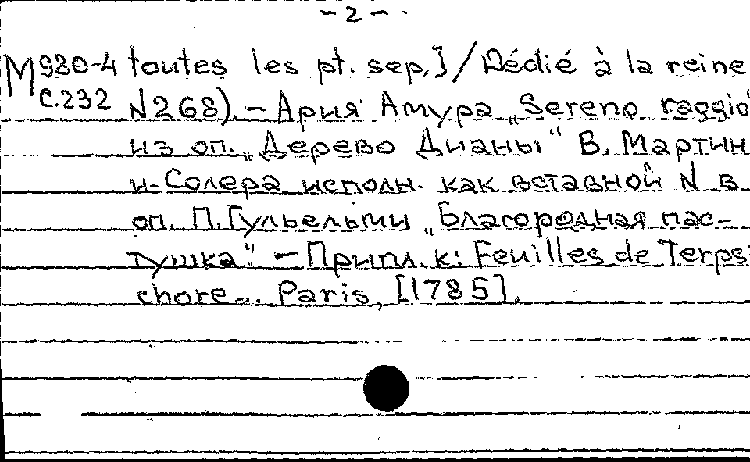 - 2 -
M 980-4 toutes les pt. sep.] / Dédié à la reine
c.232 N268). - Ария Амура „Sereno raggio"
из оп. „Дерево Дианы" В. Мартин
и-Солера исполн. как вставной N в
оп. П. Гульельми „Благородная пас-
тушка". - Припл. к: Feuilles de Terpsi
chore... Paris, [1785].